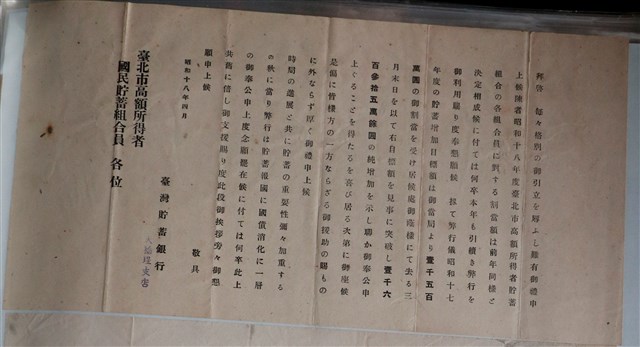 拜啓 每々格別の御引立を辱ふし難有御禮申
上候陳者昭和十八年度臺北市高額所得者貯蓄
組合の各組合員に對する割當額は前年同樣と
決定相成候に付ては何卒本年も引續き弊行を
御利用賜り度奉懇願候 扨て弊行儀昭和十七
年度の貯蓄增加目標額は御當局より壹千五百
萬圓の御割當を受け居候處御蔭樣にて去る三
月末日を以て右目標額を見事に突破し壹千六
百參拾五萬餘圓の純增加を示し聊か御奉公申
上ぐることを得たるを喜び居る次第に御座候
是偏に皆樣方の一方ならざる御援助の賜もの
に外ならす厚く御禮申上候
時局の進展と共に貯蓄の重要性彌々加重する
の秋に當り弊行は貯蓄報國に國債消化に一層
の御奉公申上度念願罷在候に付ては何卒此上
共舊に倍し御支援賜り度此段御挨拶旁々御懇
願申上候
敬具
昭和十八年四月
臺灣貯蓄銀行
大稻埕支店
臺北市高額所得者
國民貯蓄組合員 各位